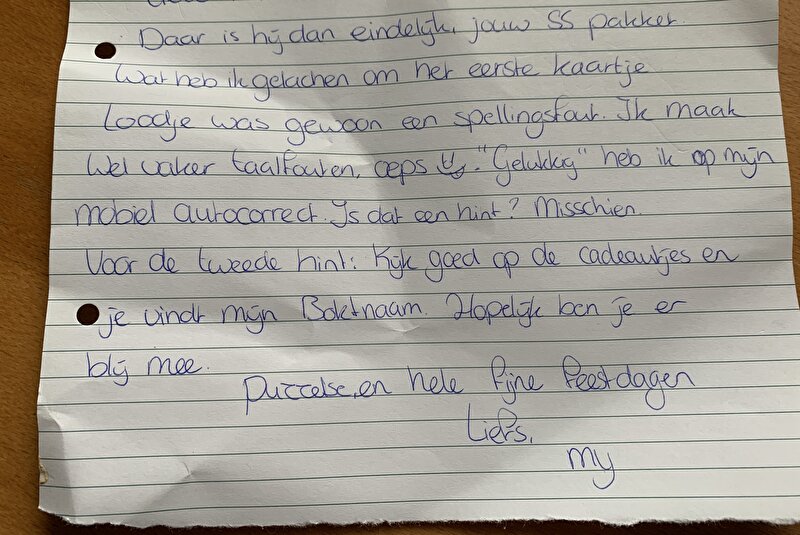 Daar is hij dan eindelijk, jouw SS pakket.
Wat heb ik gelachen om het eerste kaartje
Loodje was gewoon een spellingsfout. Ik maak
Wel vaker taalfouten, oeps. "Gelukkig" heb ik op mijn
mobiel autocorrect. Is dat een hint? Misschien.
Voor de tweede hint: Kijk goed op de cadeautjes en
je vindt mijn Boktnaam. Hopelijk ben je er
blij mee.
Puzzelse, en hele fijne feestdagen
Liefs,
my